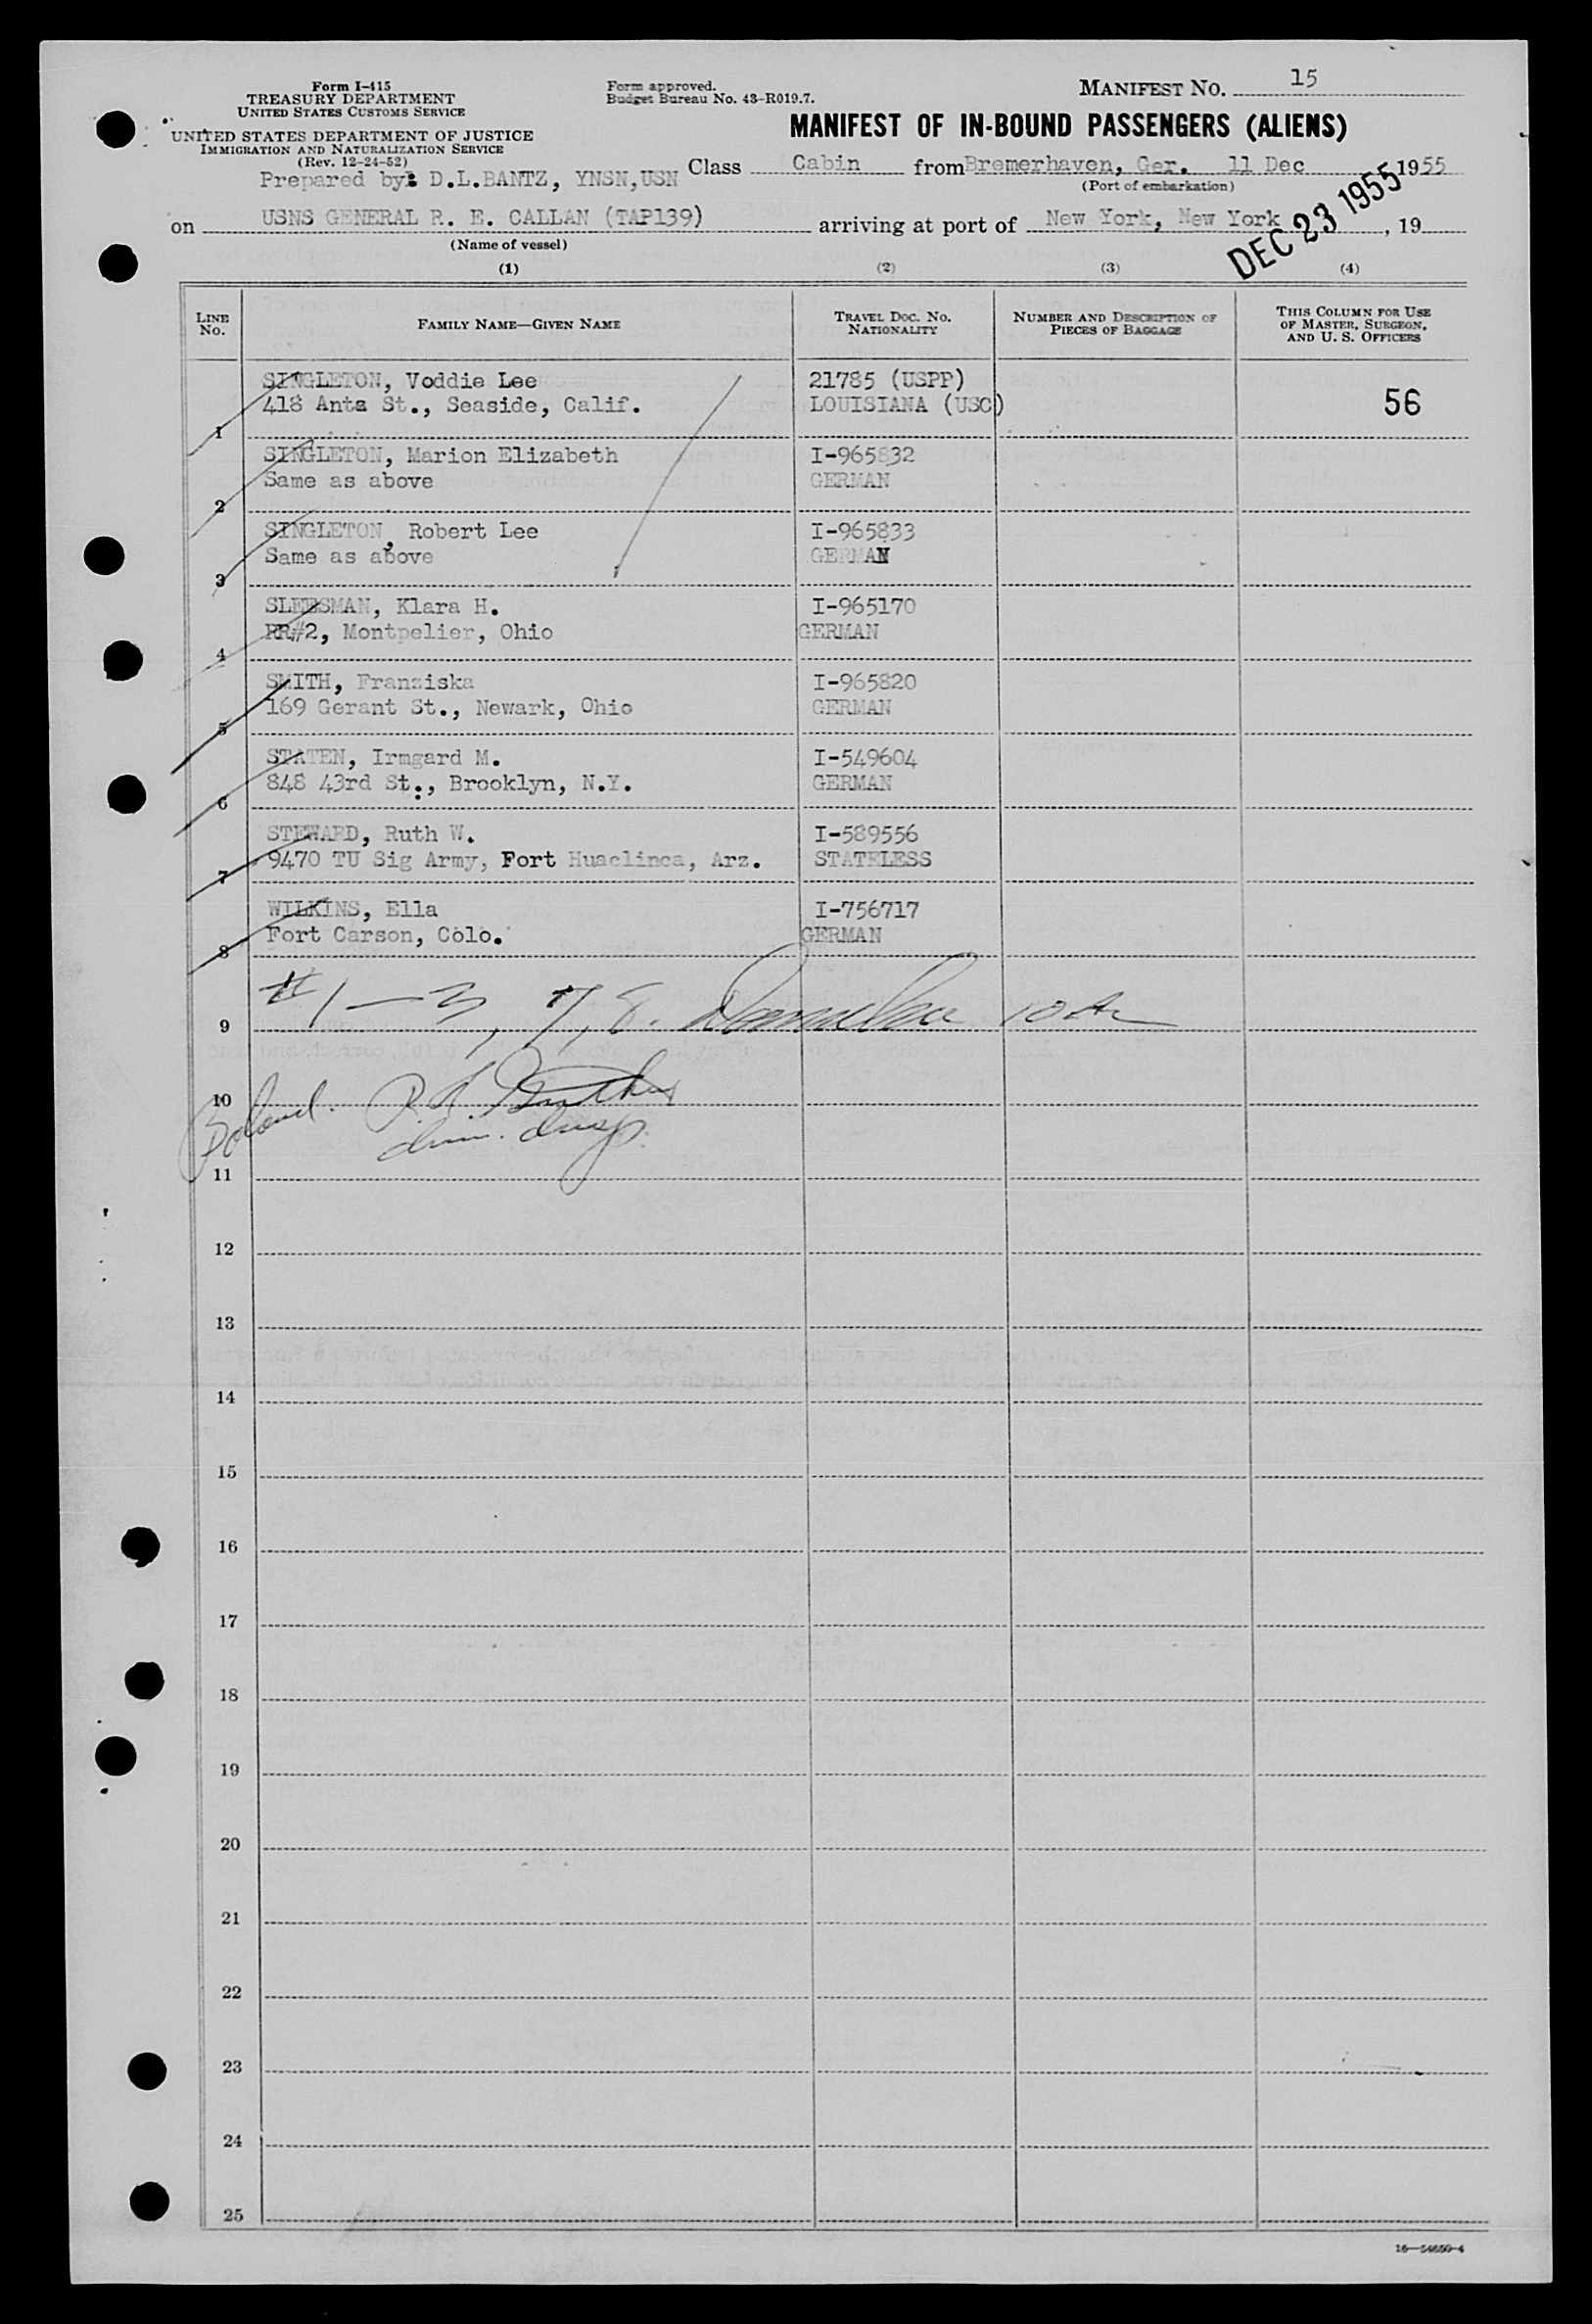 Form I-415
TREASURY DEPARTMENT
UNITED STATES CUSTOMS SERVICE
UNITED STATES DEPARTMENT OF JUSTICE
IMMIGRATION AND NATURALIZATION SERVICE
(Rev. 12-24-52)
Form approved.
Budget Bureau No. 43-R019.7.
MANIFEST NO. 15
MANIFEST OF IN-BOUND PASSENGERS (ALIENS)
Prepared by: D.L.BANTZ, YNSN,USN Class Cabin from Bremerhaven, Ger. 11 Dec 1955
(Port of embarkation)
on USNS GENERAL R. E. CALLAN (TAP139) arriving at port of New York, New York, 19
DEC 23 1955
(Name of vessel)
(1) (2) (3) (4)
LINE NO. FAMILY NAME—GIVEN NAME TRAVEL DOC. NO. NATIONALITY NUMBER AND DESCRIPTION OF PIECES OF BAGGAGE THIS COLUMN FOR USE OF MASTER, SURGEON, AND U. S. OFFICERS
SINGLETON, Voddie Lee 21785 (USPP)
1 418 Anta St., Seaside, Calif. LOUISIANA (USC) 56
SINGLETON, Marion Elizabeth I-965832
2 Same as above GERMAN
SINGLETON, Robert Lee I-965833
3 Same as above GERMAN
SLEESMAN, Klara H. I-965170
4 RR#2, Montpelier, Ohio GERMAN
SMITH, Franziska I-965820
5 169 Gerant St., Newark, Ohio GERMAN
STATEN, Irmgard M. I-549604
6 848 43rd St., Brooklyn, N.Y. GERMAN
STEWARD, Ruth W. I-589556
7 9470 TU Sig Army, Fort Huaclinca, Arz. STATELESS
WILKINS, Ella I-756717
8 Fort Carson, Colo. GERMAN
9 #1-3, 7, 8.
10
11
12
13
14
15
16
17
18
19
20
21
22
23
24
25